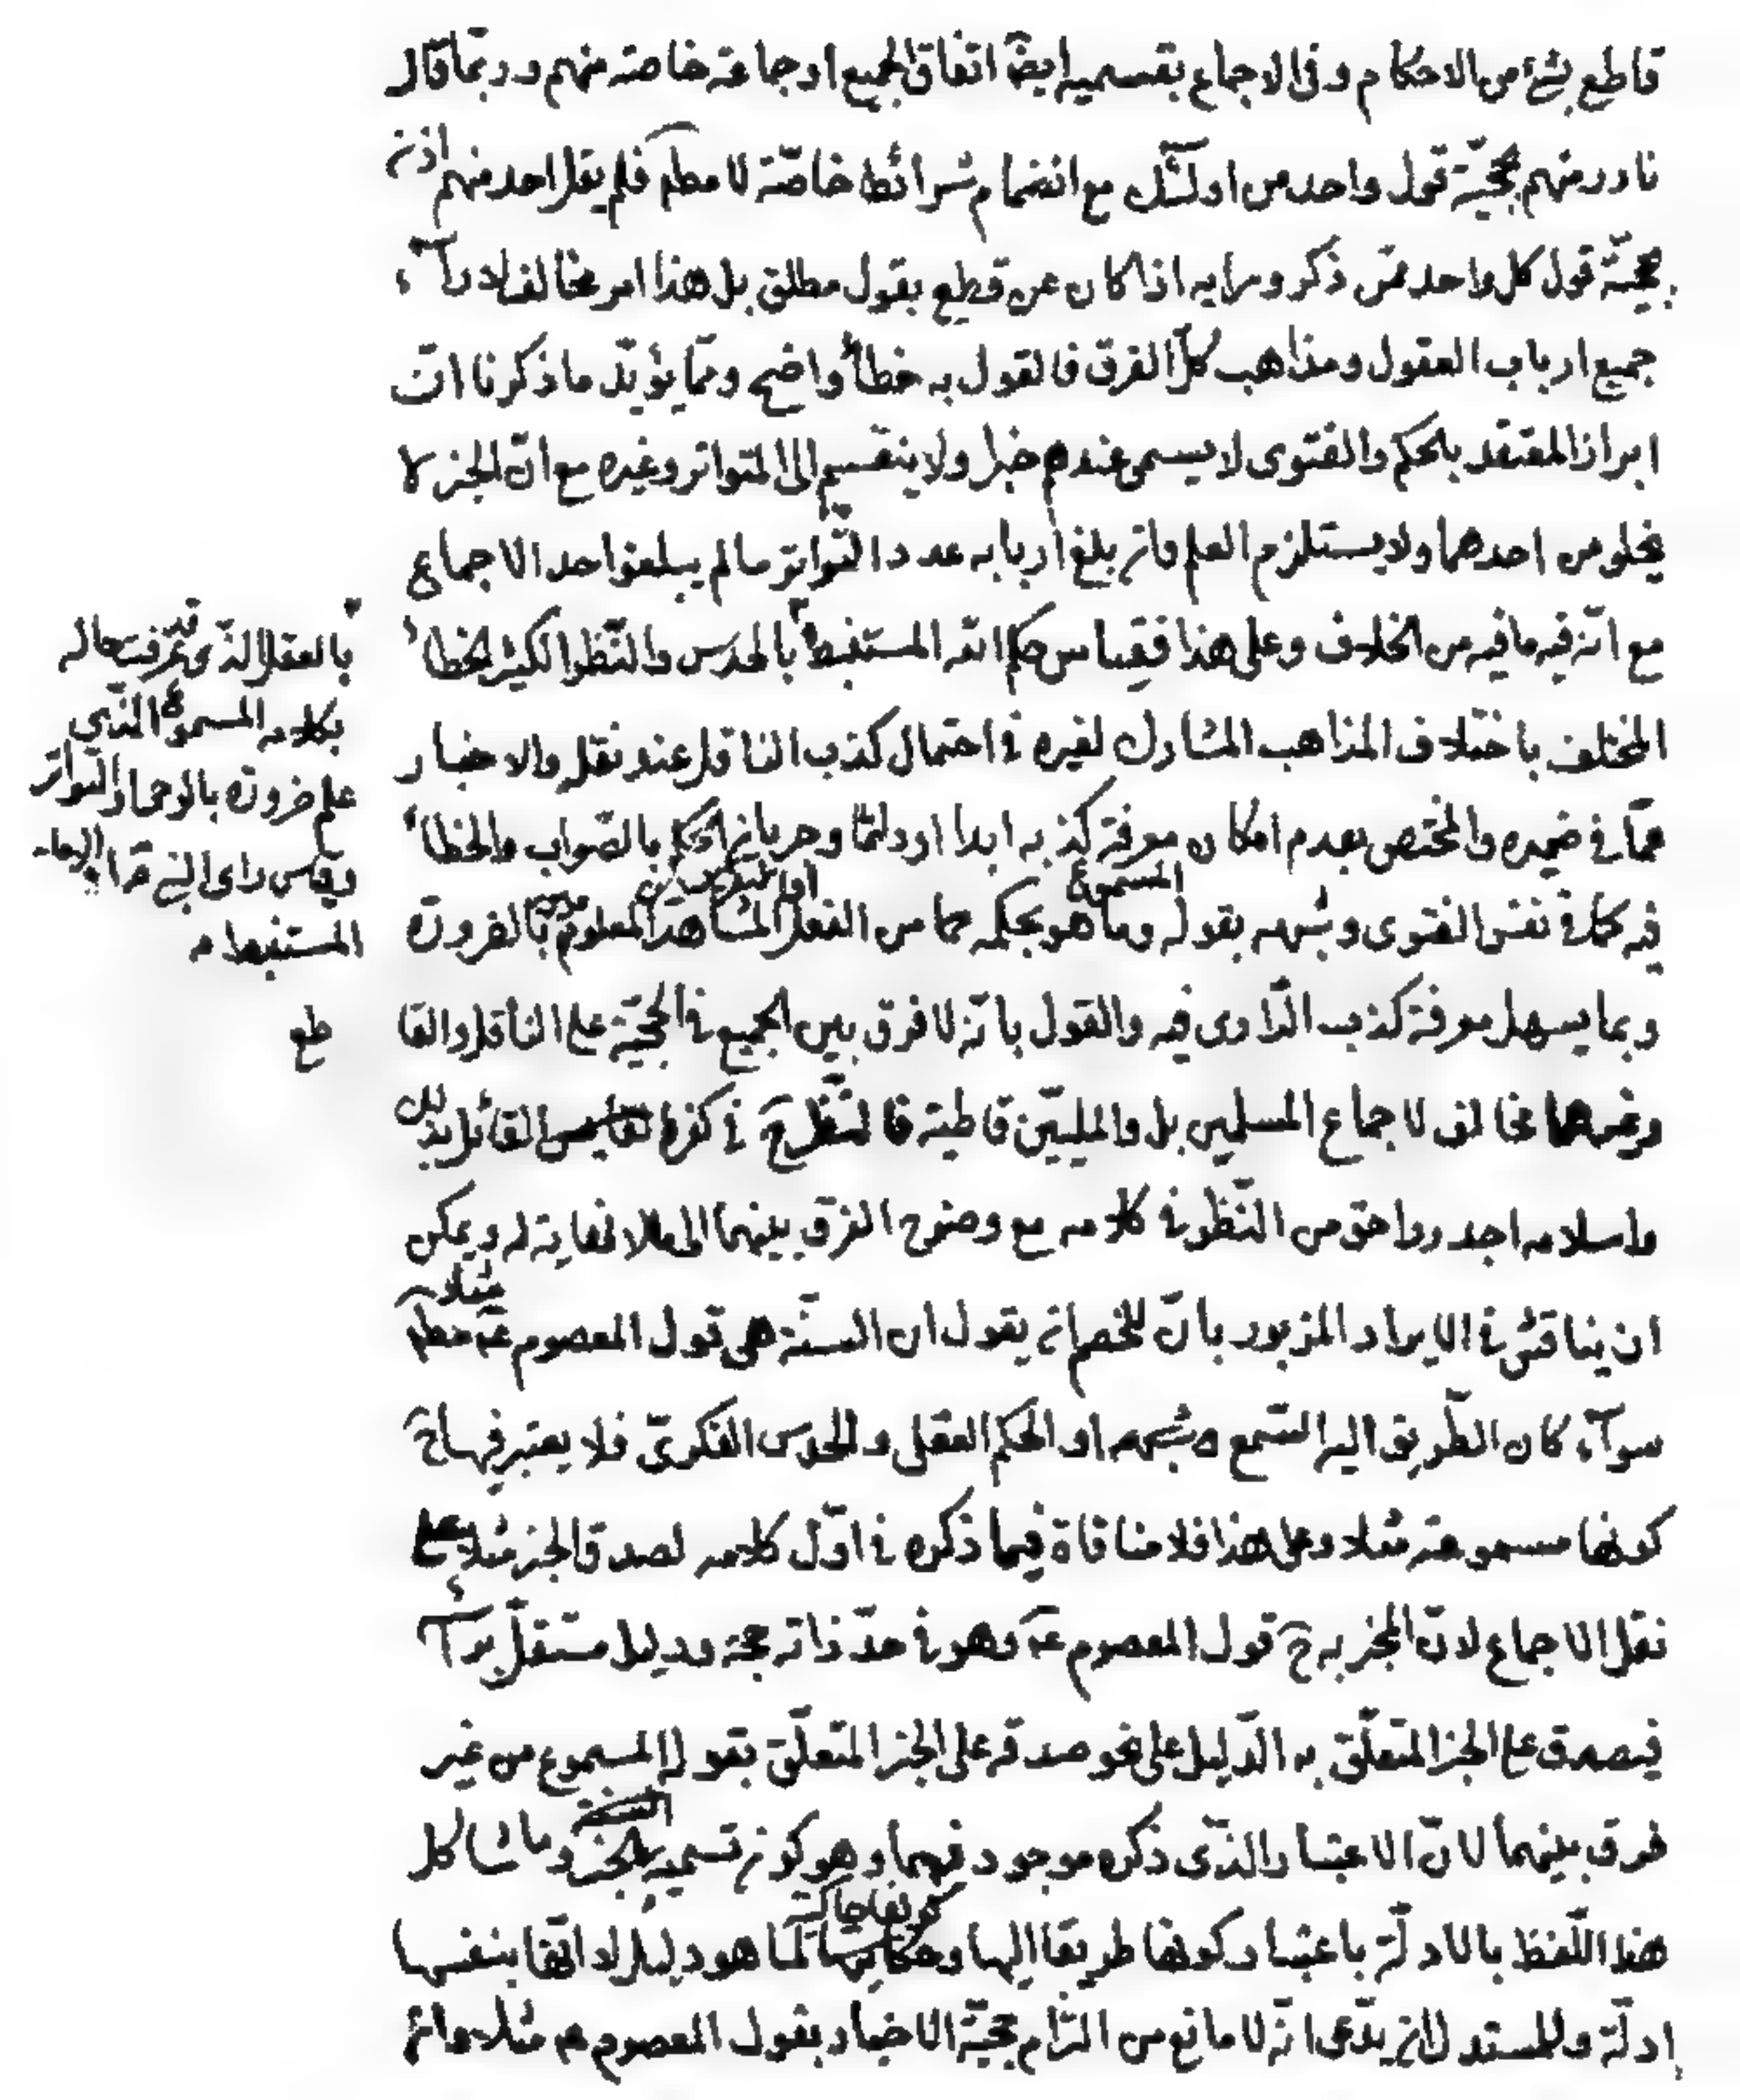 قاطع بشئ من الاحكام وفى الاجماع بقسميه ايضاً اتفاق الجميع او جماعة خاصة منهم وربما قال
نادر منهم بحجيّة قول واحد من اولئك مع انضمام شرائط خاصّة لا مطلم فلم يقل احد منهم اذن
بحجيّة قول كل واحد ممّن ذكر ورايه اذا كان عن قطع بقول مطلق بل هذا امر مخالف لارآء
جميع ارباب العقول ومذاهب كلّ الفرق فالقول به خطأ واضح وممّا يؤيّد ما ذكرنا انّ
ابراز المعتقد بالحكم والفتوى لا يسمى عندهم خبرا ولا ينقسم الى المتواتر وغيره مع انّ الخبر لا
يخلو من احدهما ولا يستلزم العلم وان بلغ اربابه عدد التّواتر ما لم يبلغوا حد الاجماع
مع انّه فيه ما فيه من الخلاف وعلى هذا فقياس حكم الله المستنبط بالحدس والنّظر الكثير الخطاء
المختلف باختلاف المذاهب المشارك لغيره في احتمال كذب الناقل عند نقله والاخبار
عمّا في ضميره والمختص بعدم امكان معرفة كذبه ابدا او دائما وجريان الحكم بالصّواب والخطاء
فيه كما في نفس الفتوى وشبهه بقوله المسموع وما هو بحكمه مما من الفعل المشاهد المعلوم بالضرورة
وبما يسهل معرفة كذب الرّاوى فيه والقول بانّه لا فرق بين الجميع في الحجيّة على الناقل والقا
وغيرهما مخالف لاجماع المسلمين بل والمليّين قاطبة فالنّظر ح في كفر القائل بذلك
واسلامه اجدر واحق من النّظر في كلامه مع وضوح الفرق بينهما الى ما لا نهاية له ويمكن
ان يناقش في الايراد المزبور بانّ للخصم ان يقول ان السنّة هى قول المعصوم عم مثلا مطلم
سوآء كان الطّريق اليه السّمع وشبهه او الحكم العقلى والحدس الفكرىّ فلا يعتبر فيها ح
كونها مسموعة مثلا وعلى هذا فلا منافاة فيما ذكره في اوّل كلامه لصدق الخبر مثلا على
نقل الاجماع لانّ المخبر به ح قول المعصوم عم وهو في حدّ ذاته حجة ودليل مستقلّ برأ
فيصدق على الخبر المتعلّق به الدّليل على نحو صدقه على الخبر المتعلّق بقوله المسموع من غير
فرق بينهما لانّ الاعتبار الذّى ذكره موجود فيهما وهو كون تسمية السنة بالخبر وما شاكل
هذا اللّفظ بالادلّة باعتبار كونها طريقا اليها كونها حاكية لما هو دليل لا انّها بنفسها
ادلّة وللمستدل ان يدّعى انّه لا مانع من التزام حجيّة الاخبار بقول المعصوم عم مثلا وان
بالعقل الذّى قد عرفت حاله
بكلامه المسموع النّبى
علم ضرورة بالوحى او التواتر
وقاس راى
المستنبط م
طع